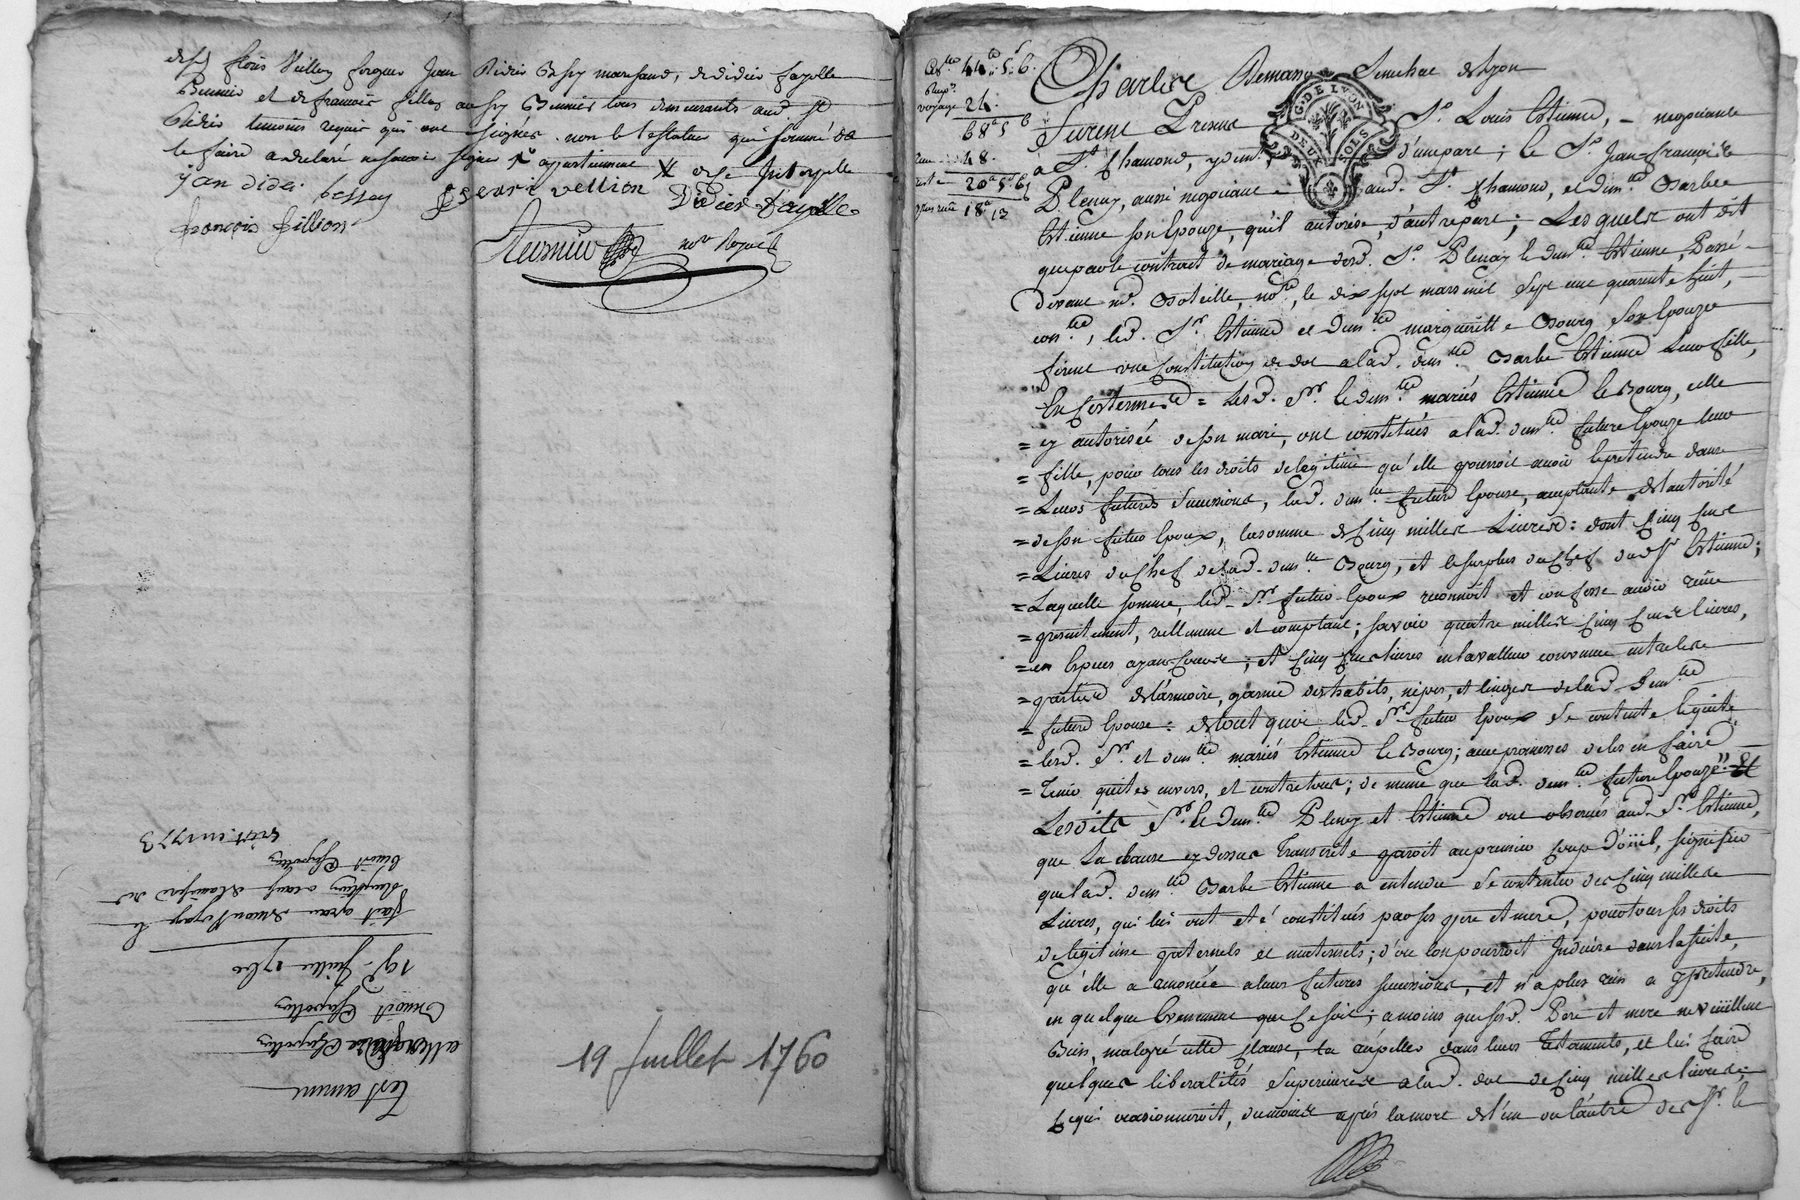 et de francois fillion aussy
temoins requis qui ont signés non le testateur qui sommé de
le faire a declaré ne savoir signer
jan didei bessey vellion Didier fayolle
francois fillion
not Royal
19 Juillet 1760
Testament
Benoit Chapollon
19e Juillet 1760
fait
Benoit Chapollon
en 1773
44 5 6
voyage 24
68 5 6
48
20 5 6
18 13
Charles Senechal de Lyon
G. DE LYON
DEUX SOLS
Furent Presens Sr. Louis Estienne, negociant
à St. Chamond, d'une part; le Sr. Jean-francois
Pleney, aussi negociant aud. St. Chamond, et demlle Barbe
Estienne son Epouze, qu'il autorise, d'autre part; Lesquels ont dit
que par le contrat de mariage desd. Sr. Pleney & demlle Estienne, Passé
Devant me. Boteille, nore, le dix sept mars mil sept cent quarente huit,
conlle, led. Sr. Estienne et Demlle margueritte Bourg son Epouze
firent une constitution de dot a lad. demlle Barbe Estienne Leur fille,
En ces termes = Lesd. Sr. & demlle mariés Estienne & Bourg, elle
= cy autorisée de son mari, ont constitués a lad. demlle future Epouze leur
= fille, pour tous les droits de legitime qu'elle pourroit avoir & pretendre dans
= Leurs futures Successions, lad. demlle future Epouse, acceptante de l'autorité
= de son futur Epoux, la somme de Cinq milles Livres: dont Cinq Cent
= Livres du Chef de lad. demlle Bourg, et le surplus du Chef dud. Sr Estienne;
= Laquelle somme, led. Sr. futur Epoux reconnoit et confesse avoir reçue
= presentement, reellement et comptant; savoir quatre milles Cinq Cents livres,
= en Especes ayant Cours; et Cinq Cents livres en la valleur convenue entre les
= parties de l'armoire, garnie des habits, nipes, et linges de lad. Demlle
= future Epouse: de tout quoi led. Sr. futur Epoux se contente & quitte
= lesd. Sr. et demlle mariés Estienne & Bourg; avec promesses de les en faire
= Tenir quittes envers, et contre tous; de meme que lad. demlle future Epouze". Et
Lesdits Sr. & Demlle Pleney et Estienne ont observés aud. Sr. Estienne,
que La clause cy dessus Transcrite paroit au premier coup d'oüil, signifier
que lad. demlle Barbe Estienne a entendu Se contenter des Cinq milles
Livres, qui lui ont été constitués par ses pere et mere, pour tous ses droits
de legitime paternels et maternels; d'ou l'on pourroit Induire dans la suite,
qu'elle a renoncée a leurs futures successions, et n'a plus rien a y pretendre,
en quelque Evenement que ce soit; a moins que sesd. Pere et mere ne veüillent
Bien, malgré cette clause, la rapeller dans leurs Testaments, et lui faire
quelques liberalités Superieures a lad. dot de Cinq milles livres;
Ce qui occasionneroit, du moins après la mort de l'un ou l'autre des Sr. &